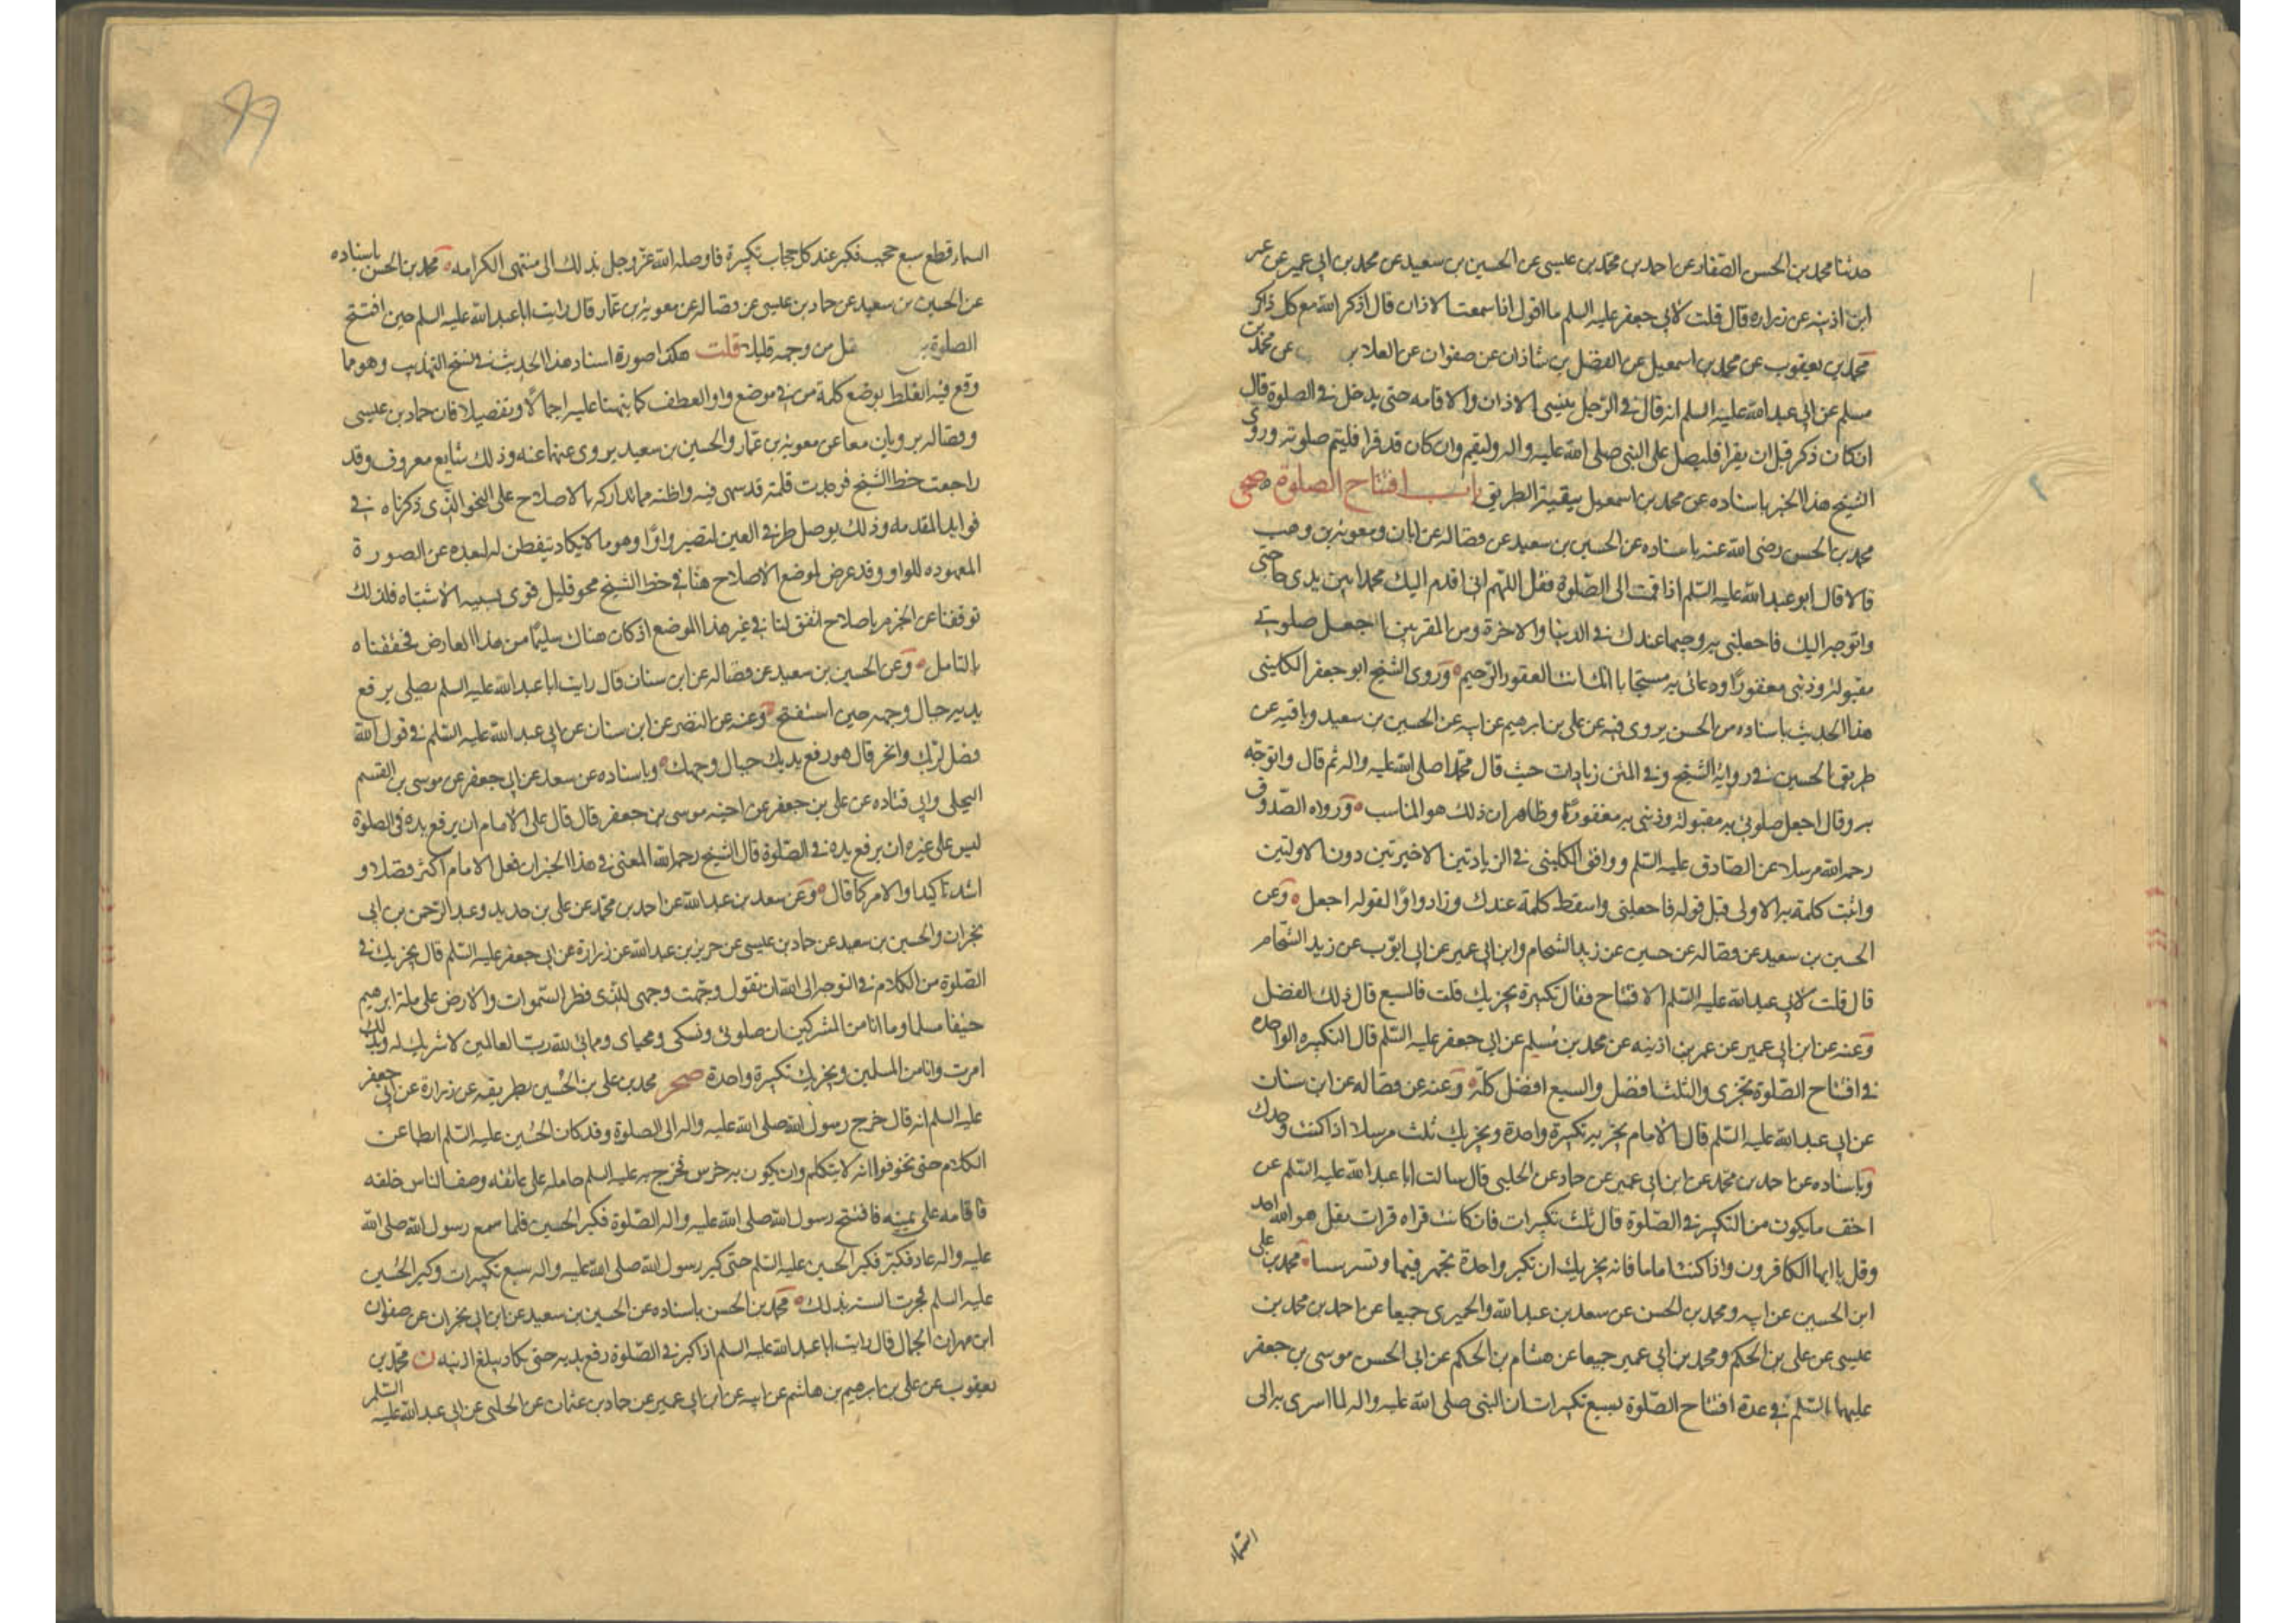 حدثنا محمد بن الحسن الصفار عن احمد بن محمد بن عيسى عن الحسين بن سعيد عن محمد بن ابي عمير عن عمر
ابن اذينه عن زراره قال قلت لابي جعفر عليه السلم ما اقول اذا سمعت الاذان قال اذكر الله مع كل ذاكر
محمد بن يعقوب عن محمد بن اسمعيل عن الفضل بن شاذان عن صفوان عن العلا بن عن محمد بن
مسلم عن ابي عبد الله عليه السلم انه قال في الرجل ينسى الاذان والاقامه حتى يدخل في الصلوة قال
ان كان ذكر قبل ان يقرا فليصل على النبي صلى الله عليه واله وليقم وان كان قد قرا فليتم صلوته وروى
الشيخ هذا الخبر باسناده عن محمد بن اسمعيل ببقية الطريق باب افتتاح الصلوة صحى
محمد بن الحسن رضى الله عنه باسناده عن الحسين بن سعيد عن فضاله عن ابان ومعوية بن وهب
قالا قال ابو عبد الله عليه السلم اذا قمت الى الصلوة فقل اللهم اني اقدم اليك محمدا بين يدى حاجتى
واتوجه اليك فاجعلنى به وجيها عندك في الدنيا والاخرة ومن المقربين اجعل صلوتى
مقبولة وذنبى مغفورا ودعائى به مستجابا انك انت الغفور الرحيم وروى الشيخ ابو جعفر الكلينى
هذا الحديث باسناده من الحسن يروى فيه عن على بن ابرهيم عن ابيه عن الحسين بن سعيد وباقيه عن
طريقها الحسين في رواية الشيخ وفي المتن زيادات حيث قال محمدا صلى الله عليه واله ثم قال واتوجه
به وقال اجعل صلوتى به مقبولة وذنبى به مغفورا وظاهر ان ذلك هو المناسب ورواه الصدوق
رحمه الله مرسلا عن الصادق عليه السلم ووافق الكلينى في الزيادتين الاخيرتين دون الاوليين
واثبت كلمة به الاولى قبل قوله فاجعلنى واسقط كلمة عندك وزاد واوا لقوله اجعل وعن
الحسين بن سعيد عن فضاله عن حسين عن زيد الشحام وابن ابي عمير عن ابي ايوب عن زيد الشحام
قال قلت لابي عبد الله عليه السلم الافتتاح فقال تكبيرة يجزيك قلت فالسبع قال ذلك الفضل
وعنه عن ابن ابي عمير عن عمر بن اذينه عن محمد بن مسلم عن ابي جعفر عليه السلم قال التكبيره الواحده
في افتتاح الصلوة تجزى والثلث افضل والسبع افضل كله وعنه عن فضاله عن ابن سنان
عن ابي عبد الله عليه السلم قال الامام يجزيه تكبيرة واحدة ويجزيك ثلث مرسلا اذا كنت وحدك
وباسناده عن احمد بن محمد عن ابن ابي عمير عن حماد عن الحلبى قال سالت ابا عبد الله عليه السلم عن
اخف ما يكون من التكبير في الصلوة قال ثلث تكبيرات فان كانت قراه قرات بقل هو الله احد
وقل يا ايها الكافرون واذا كنت اماما فانه يجزيك ان تكبر واحدة تجهر فيها وتسر ستا محمد بن على
ابن الحسين عن ابيه ومحمد بن الحسن عن سعد بن عبد الله والحميرى جميعا عن احمد بن محمد بن
عيسى عن على بن الحكم ومحمد بن ابي عمير جميعا عن هشام بن الحكم عن ابي الحسن موسى بن جعفر
عليهما السلم في عدة افتتاح الصلوة بسبع تكبيرات ان النبى صلى الله عليه واله لما اسرى به الى
السماء
99
السماء قطع سبع حجب فكبر عند كل حجاب تكبيرة فاوصله الله عز وجل بذلك الى منتهى الكرامه محمد بن الحسن باسناده
عن الحسين بن سعيد عن حماد بن عيسى عن فضاله عن معوية بن عمار قال رايت ابا عبد الله عليه السلم حين افتتح
الصلوة من وجهه قليلا قلت هكذا صورة اسناد هذا الحديث في نسخ التهذيب وهو مما
وقع فيه الغلط بوضع كلمة من في موضع واو العطف كما نبهنا عليه اجمالا وتفصيلا فان حماد بن عيسى
وفضاله يرويان معا عن معوية بن عمار والحسين بن سعيد يروى عنهما عنه وذلك شايع معروف وقد
راجعت خط الشيخ فوجدت قلمه قد سهى فيه واظنه مما تداركه بالاصلاح على النحو الذى ذكرناه في
فوايد المقدمه وذلك بوصل طرفى العين لتصير واوا وهو ما لا يكاد يتفطن له لبعده عن الصورة
المعهوده للواو وقد عرض لموضع الاصلاح هنا في خط الشيخ محو قليل قوى بسببه الاشتباه فلذلك
توقفنا عن الجزم باصلاح اتفق لنا في غير هذا الموضع اذ كان هناك سليما من هذا العارض فحققناه
بالتامل وعن الحسين بن سعيد عن فضاله عن ابن سنان قال رايت ابا عبد الله عليه السلم يصلى يرفع
يديه حيال وجهه حين استفتح وعنه عن النضر عن ابن سنان عن ابي عبد الله عليه السلم في قول الله
فصل لربك وانحر قال هو رفع يديك حيال وجهك وباسناده عن سعد عن ابي جعفر عن موسى بن القسم
البجلى وابي قتاده عن على بن جعفر عن اخيه موسى بن جعفر قال قال على الامام ان يرفع يده في الصلوة
ليس على غيره ان يرفع يده في الصلوة قال الشيخ رحمه الله المعنى في هذا الخبر ان فعل الامام اكثر فضلا و
اشد تاكيدا والامر كما قال وعن سعد بن عبد الله عن احمد بن محمد عن على بن حديد وعبد الرحمن بن ابي
نجران والحسين بن سعيد عن حماد بن عيسى عن حريز بن عبد الله عن زرارة عن ابي جعفر عليه السلم قال يجزيك في
الصلوة من الكلام في التوجه الى الله ان تقول وجهت وجهى للذى فطر السموات والارض على ملة ابرهيم
حنيفا مسلما وما انا من المشركين ان صلوتى ونسكى ومحياى ومماتى لله رب العالمين لا شريك له وبذلك
امرت وانا من المسلمين ويجزيك تكبيرة واحدة صحر محمد بن على بن الحسين بطريقه عن زرارة عن ابي جعفر
عليه السلم انه قال خرج رسول الله صلى الله عليه واله الى الصلوة وقد كان الحسين عليه السلم ابطا عن
الكلام حتى تخوفوا انه لا يتكلم وان يكون به خرس فخرج به عليه السلم حامله على عاتقه وصف الناس خلفه
فاقامه على يمينه فافتتح رسول الله صلى الله عليه واله الصلوة فكبر الحسين فلما سمع رسول الله صلى الله
عليه واله عاد فكبر فكبر الحسين عليه السلم حتى كبر رسول الله صلى الله عليه واله سبع تكبيرات وكبر الحسين
عليه السلم فجرت السنة بذلك محمد بن الحسن باسناده عن الحسين بن سعيد عن ابن ابي نجران عن صفوان
ابن مهران الجمال قال رايت ابا عبد الله عليه السلم اذا كبر في الصلوة رفع يديه حتى يكاد يبلغ اذنيه ن محمد بن
يعقوب عن على بن ابرهيم بن هاشم عن ابيه عن ابن ابي عمير عن حماد بن عثمان عن الحلبى عن ابي عبد الله عليه السلم